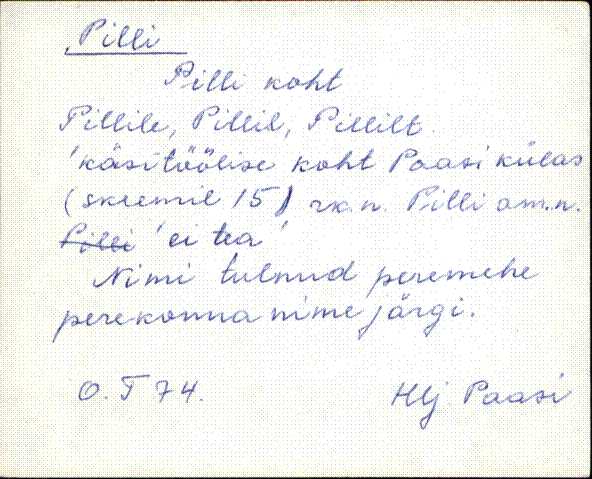 Pilli
Pilli koht
Pillile, Pillil, Pillilt.
'käsitöölise koht Paasi külas
(skeemil 15) rk.n. Pilli am.n.
Pilli 'ei tea'
Nimi tulnud peremehe
perekonna nime järgi.
O. T 74. Hlj Paasi